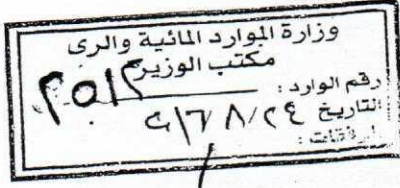 وزارة الموارد المائية والرى
مكتب الوزير
رقم الوارد : ٢٥١٣
التاريخ ٢٠١٦/٨/٢٤
المرفقات :